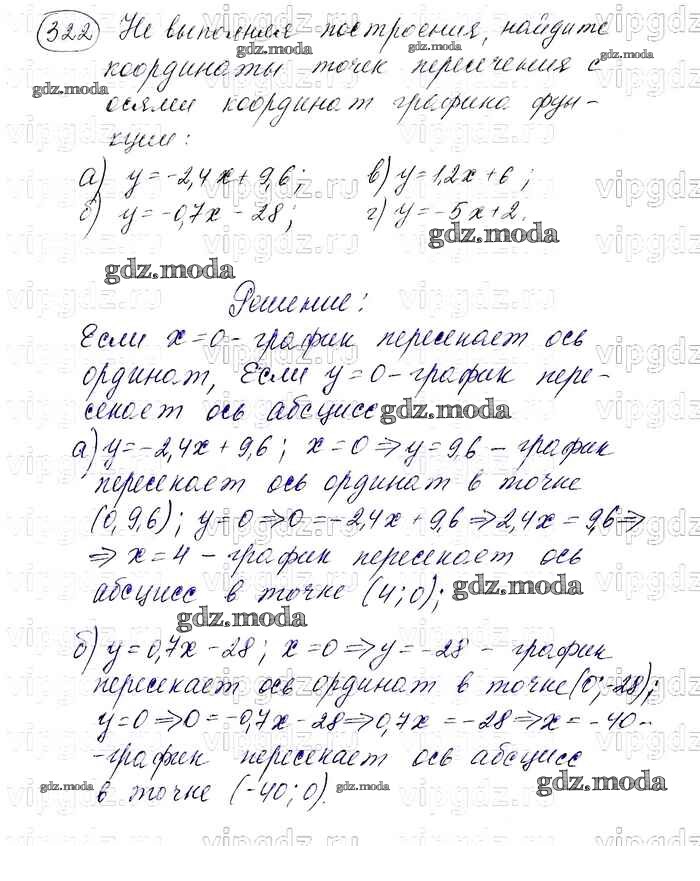 322 Не выполняя построения, найдите
координаты точек пересечения с
осями координат графика фун-
кции:
а) y=-2,4x+9,6; в) y=1,2x+6;
б) y=-0,7x-28; г) y=-5x+2.
Решение:
Если x=0-график пересекает ось
ординат, Если y=0-график пере-
секает ось абсцисс
а) y=-2,4x+9,6; x=0⇒y=9,6-график
пересекает ось ординат в точке
(0,9,6); y=0⇒0=-2,4x+9,6⇒2,4x=9,6⇒
⇒x=4-график пересекает ось
абсцисс в точке (4;0);
б) y=0,7x-28; x=0⇒y=-28-график
пересекает ось ординат в точке (0;-28);
y=0⇒0=-0,7x-28⇒0,7x=-28⇒x=-40-
-график пересекает ось абсцисс
в точке (-40;0).
gdz.moda
gdz.moda
gdz.moda
gdz.moda
gdz.moda
gdz.moda
gdz.moda
gdz.moda
gdz.moda
gdz.moda
gdz.moda
vipgdz.ru